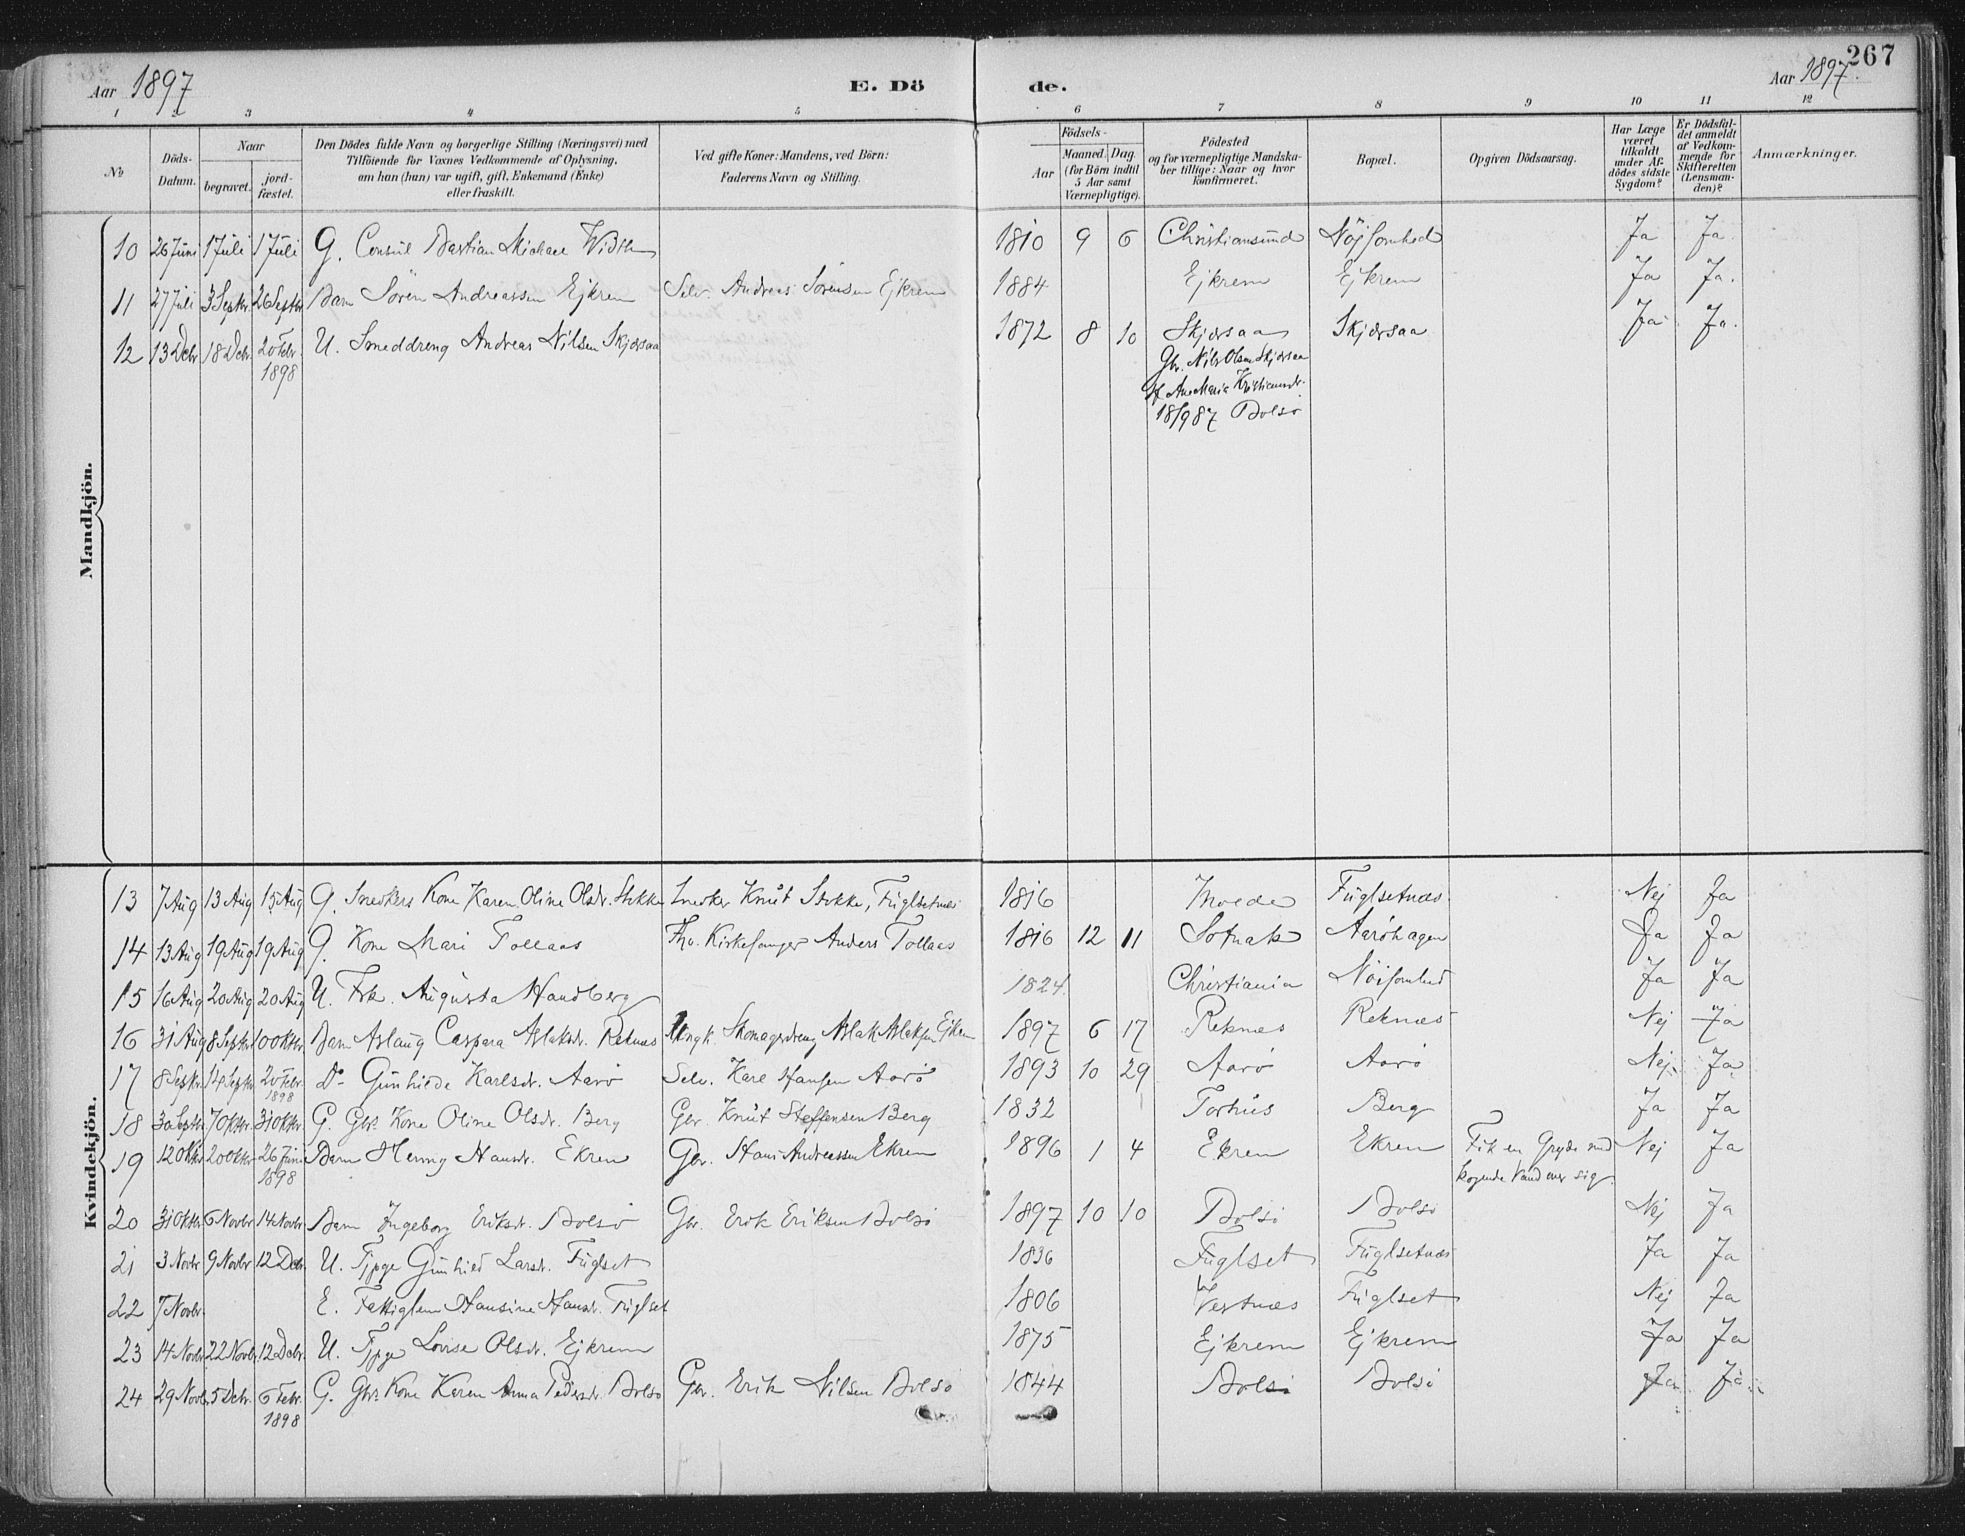 267
Aar 1897
E. Dö
de.
Aar 1897.
1 2 3 4 5 6 7 8 9 10 11 12
No
Döds-Datum.
Naar
begravet.
jord-fæstet.
Den Dödes fulde Navn og borgerlige Stilling (Næringsvei) med
Tilföiende for Voxnes Vedkommende af Oplysning,
om han (hun) var ugift, gift, Enkemand (Enke)
eller fraskilt.
Ved gifte Koner: Mandens, ved Börn:
Faderens Navn og Stilling.
Födsels-
Aar
Maaned. Dag
(for Börn indtil
5 Aar samt
Værnepligtige).
Födested
og for værnepligtige Mandska-
ber tillige: Naar og hvor
konfirmeret.
Bopæl.
Opgiven Dödsaarsag.
Har Læge
været
tilkaldt
under Af-
dödes sidste
Sygdom?
Er Dödsfal-
det anmeldt
af Vedkom-
mende for
Skifteretten
(Lensman-
den)?
Anmærkninger.
Mandkjön.
10 26 Juni 1 Juli 1 Juli G. Consul Bastian Michael Width 1810 9 6 Christiansund Nöjsomhed Ja Ja.
11 27 Juli 3 Septbr 26 Septbr Barn Sören Andreassen Ejkrem Selv. Andreas Sörensen Ejkrem 1884 Ejkrem Ejkrem Ja Ja.
12 13 Debr 18 Debr. 20 Febr. 1898 U. Smeddreng Andreas Nilsen Skjorsaa 1872 8 10 Skjorsaa Skjorsaa Ja Ja.
Gbr. Nils Olsen Skjorsaa
Ane Maria Kristiansdr.
18/9 87 Bolsö
Kvindekjön.
13 7 Aug 13 Aug 15 Aug G. Snedkers Kone Karen Oline Olsdr. Stokke Snedker Knut Stokke, Fuglsetnæs 1816 Molde Fuglsetnæs Nej Ja
14 13 Aug 19 Aug 19 Aug G. Kone Mari Tollaas Fhv. Kirkesanger Anders Tollaas 1816 12 11 Sotnak Aaröhagen Ja Ja
15 16 Aug 20 Aug 20 Aug U. Frk. Augusta Handberg 1824 Christiania Nöisomhed Ja Ja
16 31 Aug 8 Septbr 10 Oktbr. Barn Aslaug Caspara Aslaksdr. Reknæs Ungk. Skomagerdreng Aslak Aslaksen Ejkrem 1897 6 17 Reknæs Reknæs Nej Ja
17 8 Septbr. 14 Septbr 20 Febr. 1898 Do Gunhilde Karlsdr. Aarö Selv. Karl Hansen Aarö 1893 10 29 Aarö Aarö Nej. Ja
18 30 Septbr 7 Oktbr. 31 Oktbr. G. Gbrs Kone Oline Olsdr. Berg Gbr. Knut Steffensen Berg 1832 Torhus Berg Ja Ja
19 12 Oktbr 20 Oktbr 26 Juni 1898 Barn Hansdr. Ekrem Gbr. Hans Andreassen Ekrem 1896 1 4 Ekrem Ekrem Fik en Gryde med Nej Ja
kogende Vand over sig.
20 31 Oktbr 6 Novbr 14 Novbr Barn Ingeborg Eriksdr. Bolsö Gbr. Erik Eriksen Bolsö 1897 10 10 Bolsö Bolsö Nej Ja
21 3 Novbr 9 Novbr 12 Debr. U. Tjpge Gunhild Larsdr. Fuglset 1836 Fuglset Fuglsetnæs Ja Ja
22 7 Novbr. E. Fattiglem Hansine Hansdr. Fuglset 1806 Vestnæs Fuglset Nej Ja
23 14 Novbr 22 Novbr 12 Debr. U. Tjpge Lovise Olsdr. Ejkrem 1875 Ejkrem Ejkrem Ja Ja
24 29 Novbr. 5 Debr. 6 Febr. 1898 G. Gbrs Kone Karen Anna Pedersdr. Bolsö Gbr. Erik Nilsen Bolsö 1844 Bolsö Bolsö Ja Ja